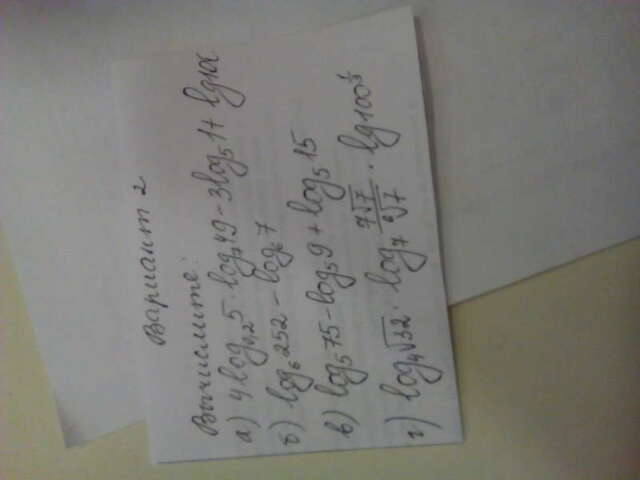 Вариант 2
Вычислите:
а) 4log₀,₂5 · log₇49 - 3log₅1 + lg
б) log₆252 - log₆7
в) log₅75 - log₅9 + log₅15
г) log₄√32 · log₇ 7√7/⁶√7 · lg100^⅓